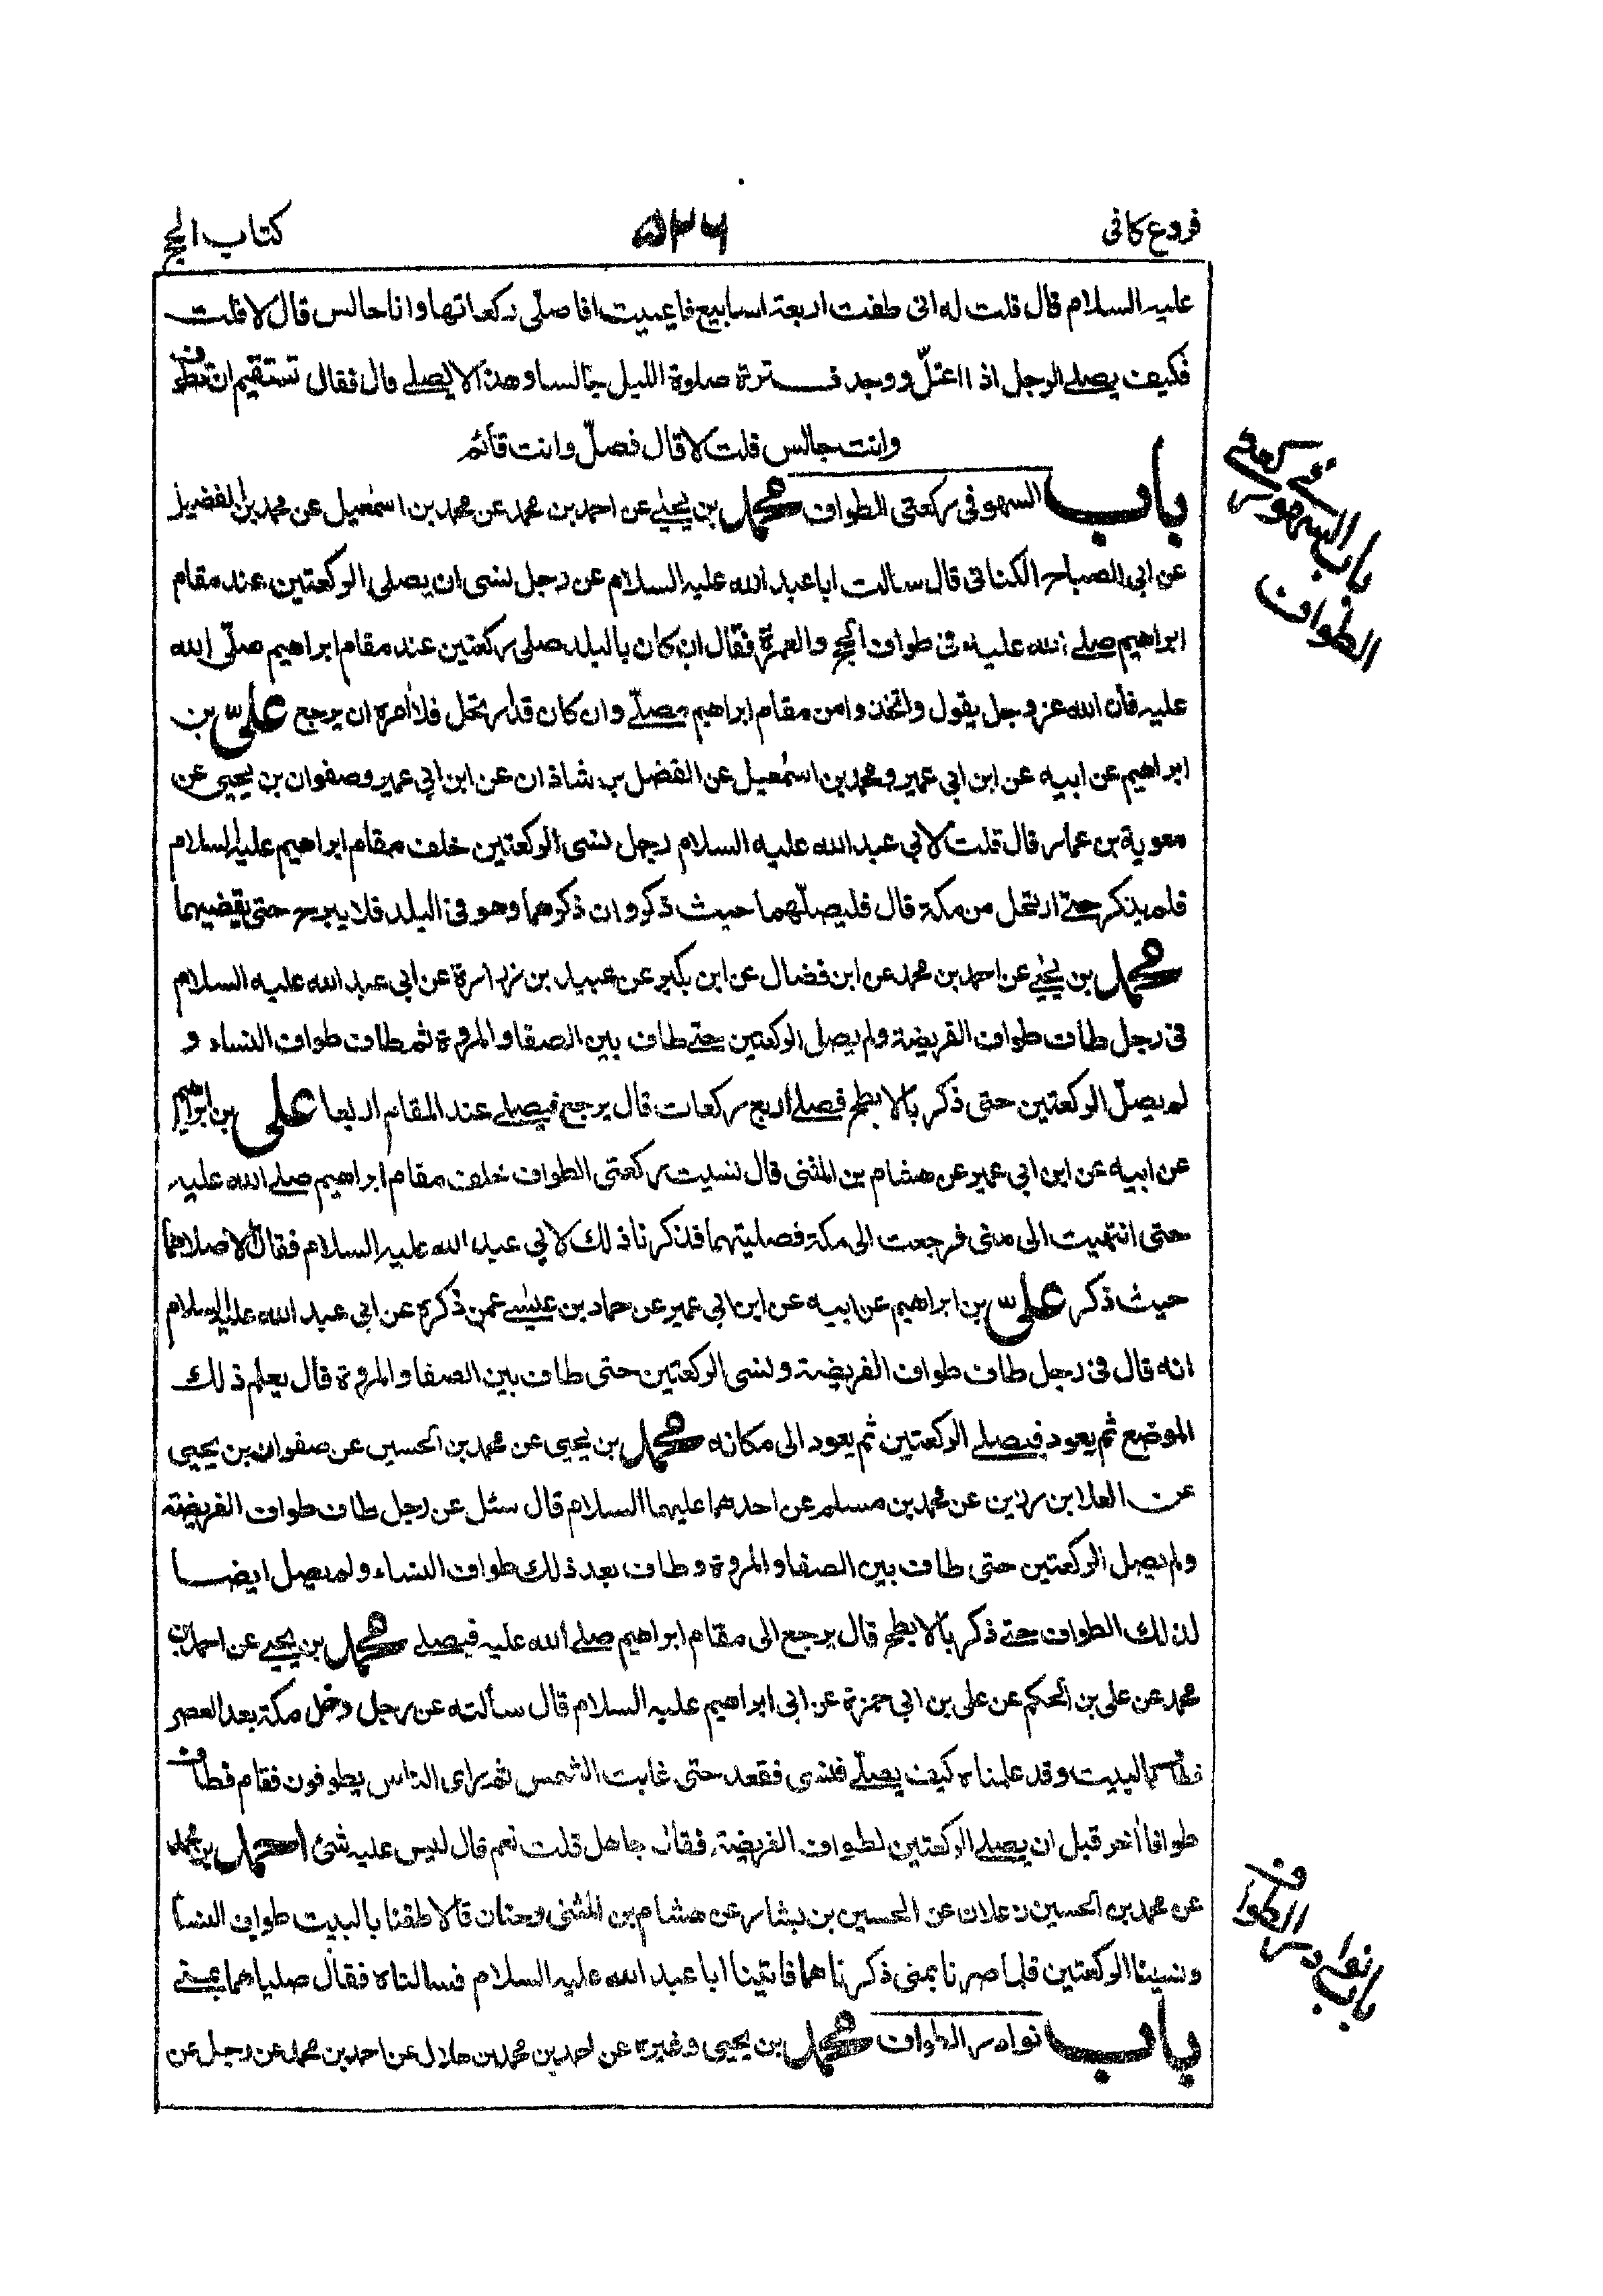 فروع كافى
۵۲۶
كتاب الحج
عليه السلام قال قلت له انى طفت اربعة اسابيع فاعييت افاصلّى ركعاتها وانا جالس قال لا قلت
فكيف يصلے الرجل اذا اعتلّ ووجد فترة صلوة الليل جالسا وهذا لا يصلے قال فقال تستقيم ان تطوف
وانت جالس قلت لا قال فصلّ وانت قائم
باب السهو فى ركعتى الطواف محمد بن يحيے عن احمد بن محمد عن محمد بن اسمعيل عن محمد بن الفضيل
عن ابى الصباح الكنانى قال سالت ابا عبد الله عليه السلام عن رجل نسى ان يصلى الركعتين عند مقام
ابراهيم صلے الله عليه فى طواف الحج والعمرة فقال ان كان بالبلد صلى ركعتين عند مقام ابراهيم صلّى الله
عليه فان الله عزوجل يقول واتخذوا من مقام ابراهيم مصلّے وان كان قد ارتحل فلا امره ان يرجع علىّ بن
ابراهيم عن ابيه عن ابن ابي عمير ومحمد بن اسمعيل عن الفضل بن شاذان عن ابن ابي عمير وصفوان بن يحيى عن
معوية بن عمار قال قلت لابي عبد الله عليه السلام رجل نسى الركعتين خلف مقام ابراهيم عليه السلام
فلم يذكر حتے ارتحل من مكة قال فليصلّهما حيث ذكر وان ذكرهما وهو فى البلد فلا يبرح حتى يقضيهما
محمد بن يحيے عن احمد بن محمد عن ابن فضال عن ابن بكير عن عبيد بن زرارة عن ابي عبد الله عليه السلام
فى رجل طاف طواف الفريضة ولم يصل الركعتين حتے طاف بين الصفا والمروة ثم طاف طواف النساء و
لم يصلّ الركعتين حتى ذكر بالابطح فصلے اربع ركعات قال يرجع فيصلے عند المقام اربعا على بن ابراهيم
عن ابيه عن ابن ابي عمير عن هشام بن المثنى قال نسيت ركعتى الطواف خلف مقام ابراهيم صلے الله عليه
حتى انتهيت الى منى فرجعت الى مكة فصليتهما فذكرنا ذلك لابي عبد الله عليه السلام فقال الا صلاهما
حيث ذكر علىّ بن ابراهيم عن ابيه عن ابن ابي عمير عن حماد بن عيسے عمن ذكره عن ابي عبد الله عليه السلام
انه قال فى رجل طاف طواف الفريضة ونسى الركعتين حتى طاف بين الصفا والمروة قال يعلم ذلك
الموضع ثم يعود فيصلے الركعتين ثم يعود الى مكانه محمد بن يحيى عن محمد بن الحسين عن صفوان بن يحيى
عن العلا بن رزين عن محمد بن مسلم عن احدهما عليهما السلام قال سئل عن رجل طاف طواف الفريضة
ولم يصل الركعتين حتى طاف بين الصفا والمروة وطاف بعد ذلك طواف النساء ولم يصل ايضا
لذلك الطواف حتے ذكر بالابطح قال يرجع الى مقام ابراهيم صلے الله عليه فيصلے محمد بن يحيے عن احمد بن
محمد عن على بن الحكم عن على بن ابي حمزة عن ابى ابراهيم عليه السلام قال سألته عن رجل دخل مكة بعد العصر
فطاف بالبيت وقد علمناه كيف يصلّے فنسى فقعد حتى غابت الشمس ثم راى الناس يطوفون فقام فطاف
طوافا اخر قبل ان يصلے الركعتين لطواف الفريضة فقال جاهل قلت نعم قال ليس عليه شئ احمد بن محمد
عن محمد بن الحسين زعلان عن الحسين بن بشار عن هشام بن المثنى وحنان قالا طفنا بالبيت طواف النسا
ونسينا الركعتين فلما صرنا بمنى ذكرناهما فاتينا ابا عبد الله عليه السلام فسالناه فقال صلياهما بمنے
باب نوادر الطواف محمد بن يحيى وغيره عن احمد بن محمد بن هلال عن احمد بن محمد عن رجل عن
باب السهو فى ركعتے
الطواف
باب نوادر الطواف